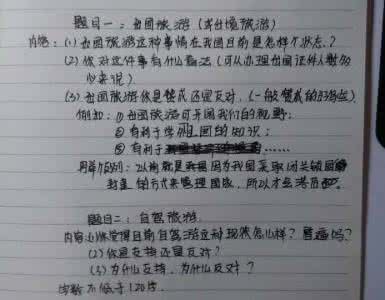 题目一：出国旅游（或出境旅游）
内容：(1) 出国旅游这种事情在我国目前是怎样个状态？
(2) 你对这件事有什么看法（可从办理出国证件人数的多少来说）
(3) 出国旅游你是赞成还是反对，（一般赞成的好答些）
例如：① 出国旅游可开阔我们的视野；
② 有利于学 国的知识；
③ 有利于……
再举个例：以前就是因为我国采取闭关锁国
封 方式来管理国家，所以才会落后
题目二：自驾旅游
内容：(1) 你觉得目前自驾游这种现状怎么样？普遍吗？
(2) 你是支持还是反对？
(3) 为什么支持，为什么反对？
字数不低于120字.